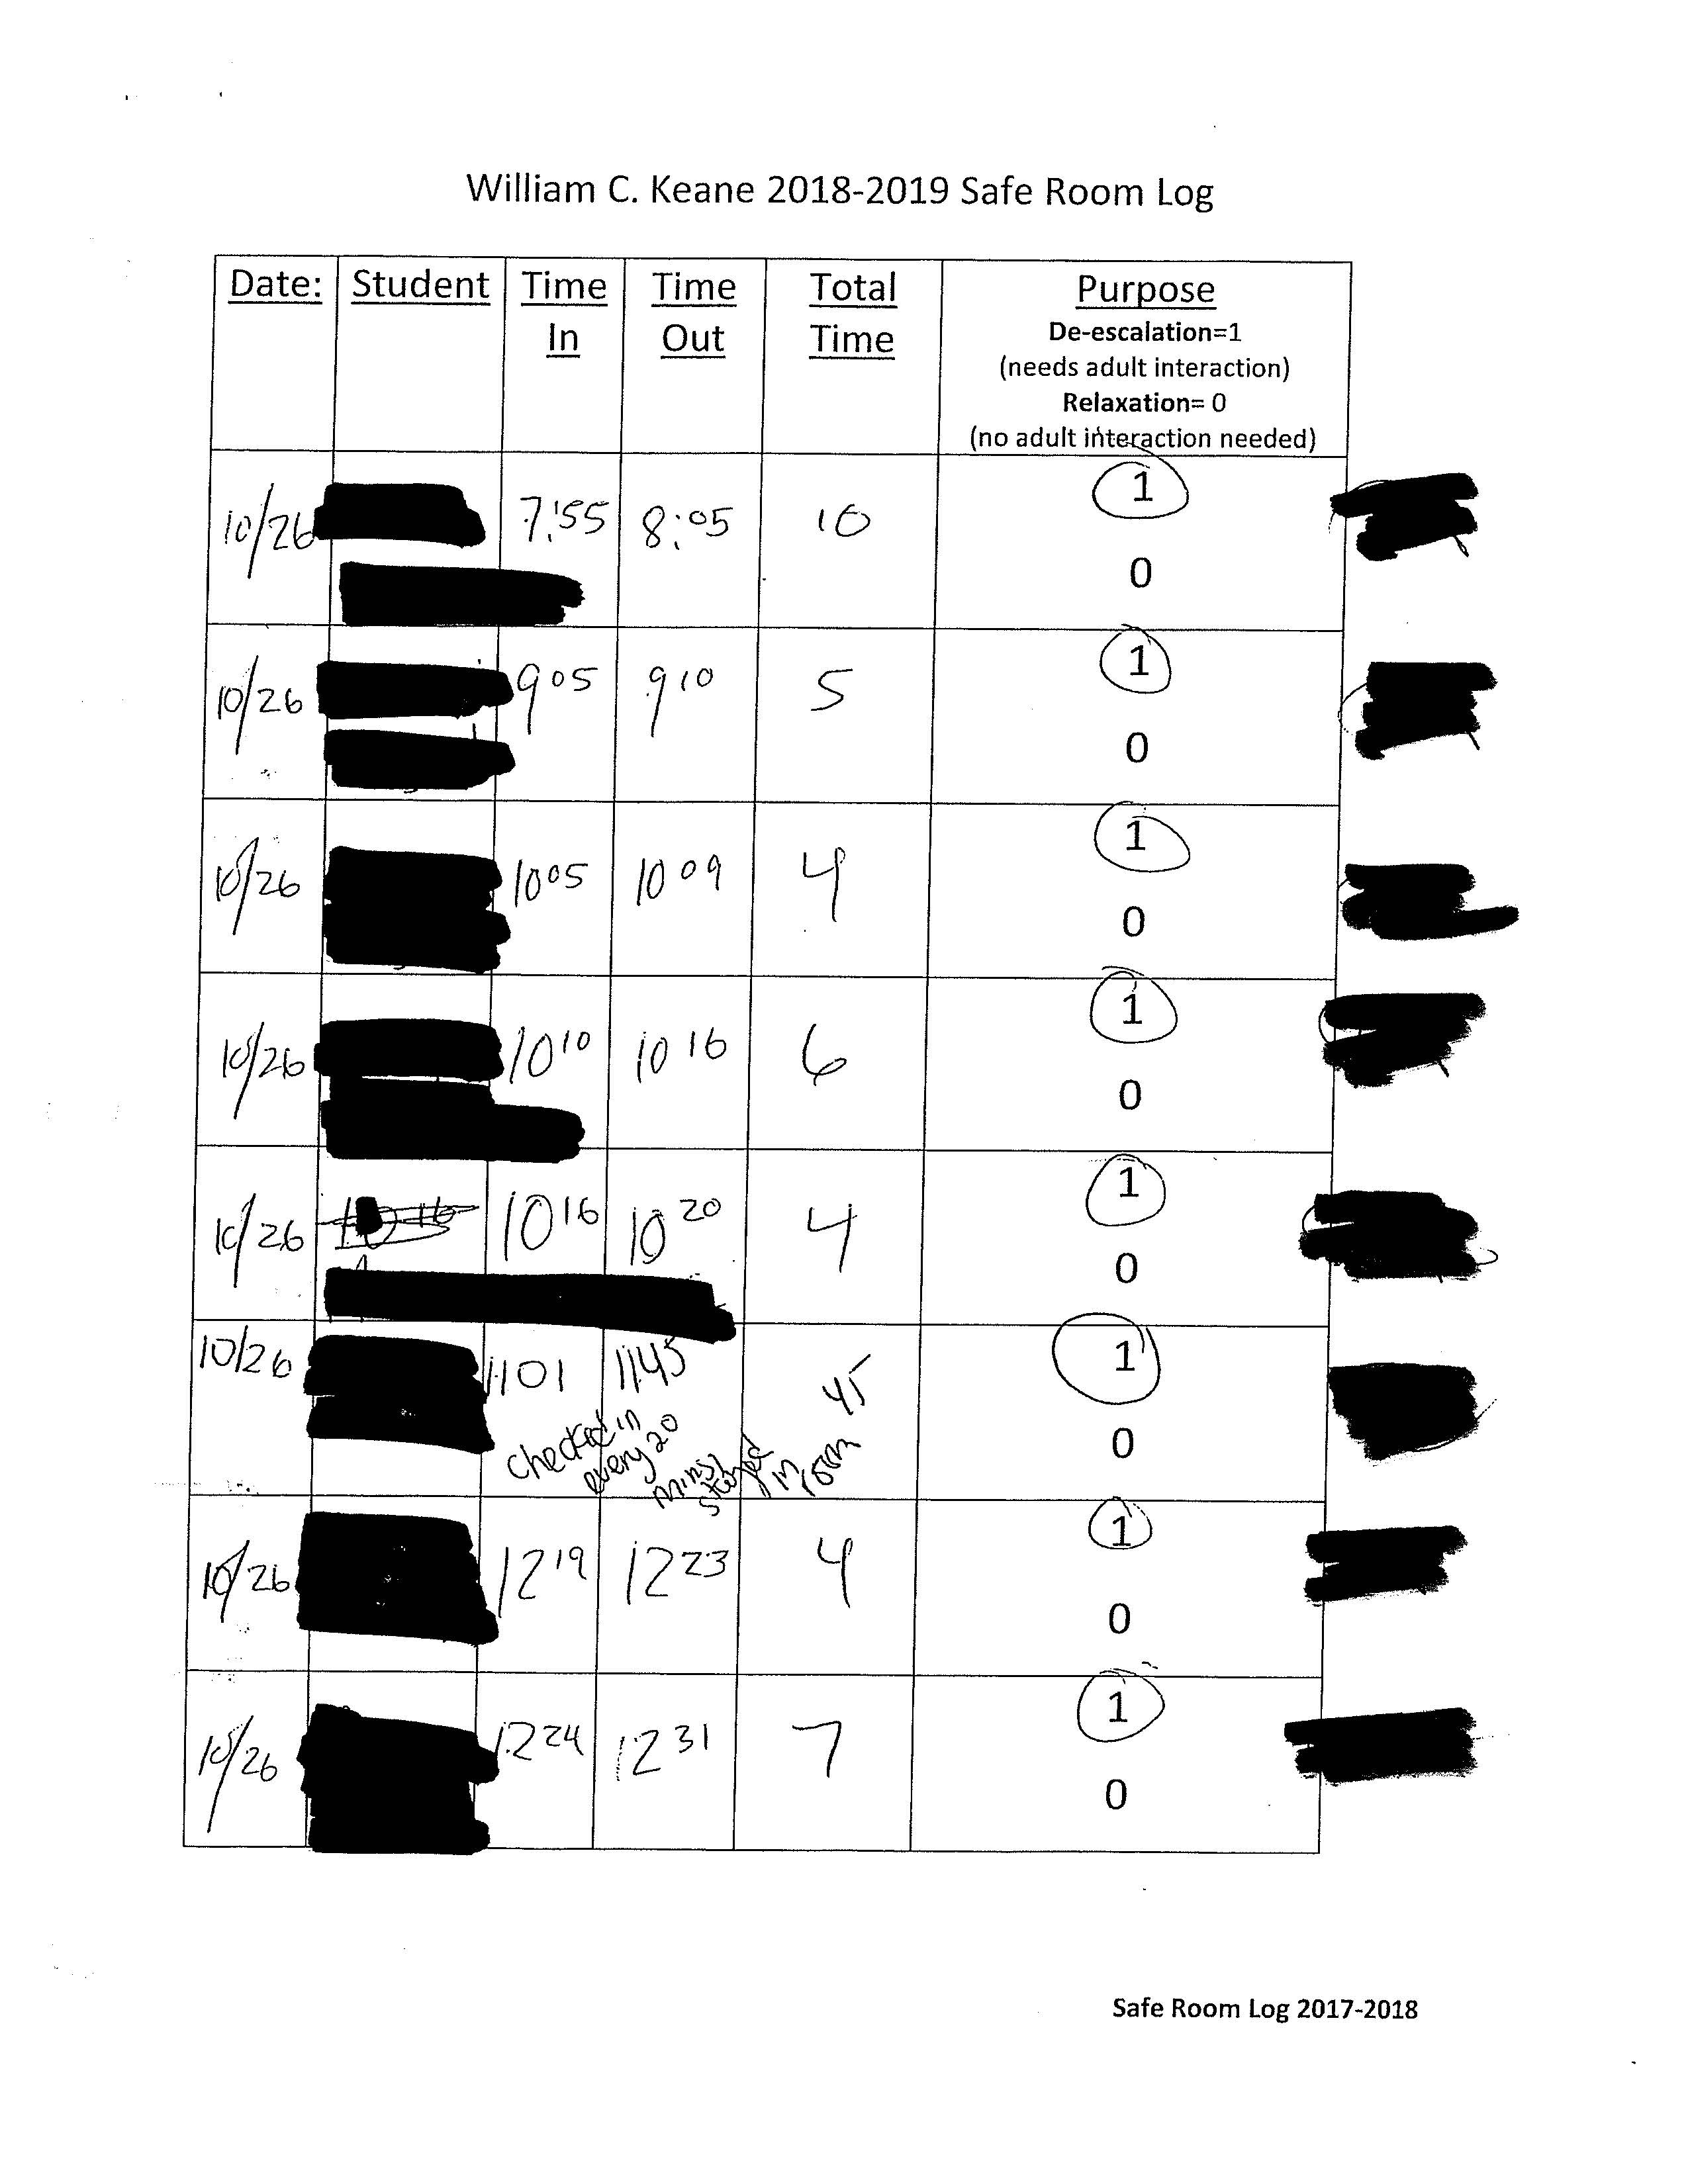 William C. Keane 2018-2019 Safe Room Log
Date: Student Time In Time Out Total Time Purpose
De-escalation=1
(needs adult interaction)
Relaxation= 0
(no adult interaction needed)
10/26 7:55 8:05 10 1
0
10/26 9 05 9 10 5 1
0
10/26 10 05 10 09 4 1
0
10/26 10 10 10 16 6 1
0
10/26 10 16 10 16 10 20 4 1
0
10/26 1101 1145 45 1
checked in every 20 mins, stayed in room
0
10/26 12 19 12 23 4 1
0
10/26 12 24 12 31 7 1
0
Safe Room Log 2017-2018